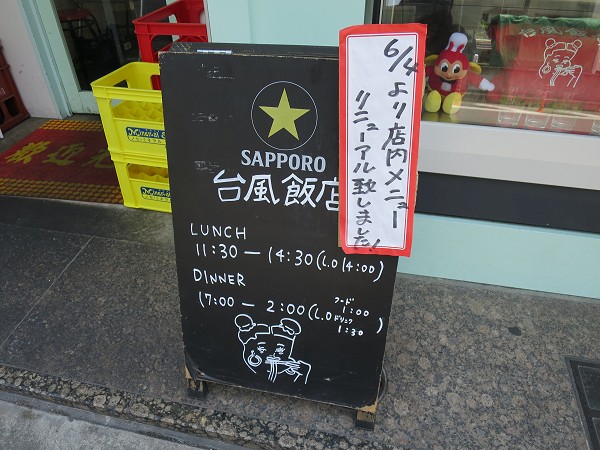 SAPPORO
台風飯店
LUNCH
11:30 — 14:30 (L.O 14:00)
DINNER
17:00 — 2:00 (L.O フード 1:00
ドリンク 1:30)
6/4より店内メニュー
リニューアル致しました!
歓迎光